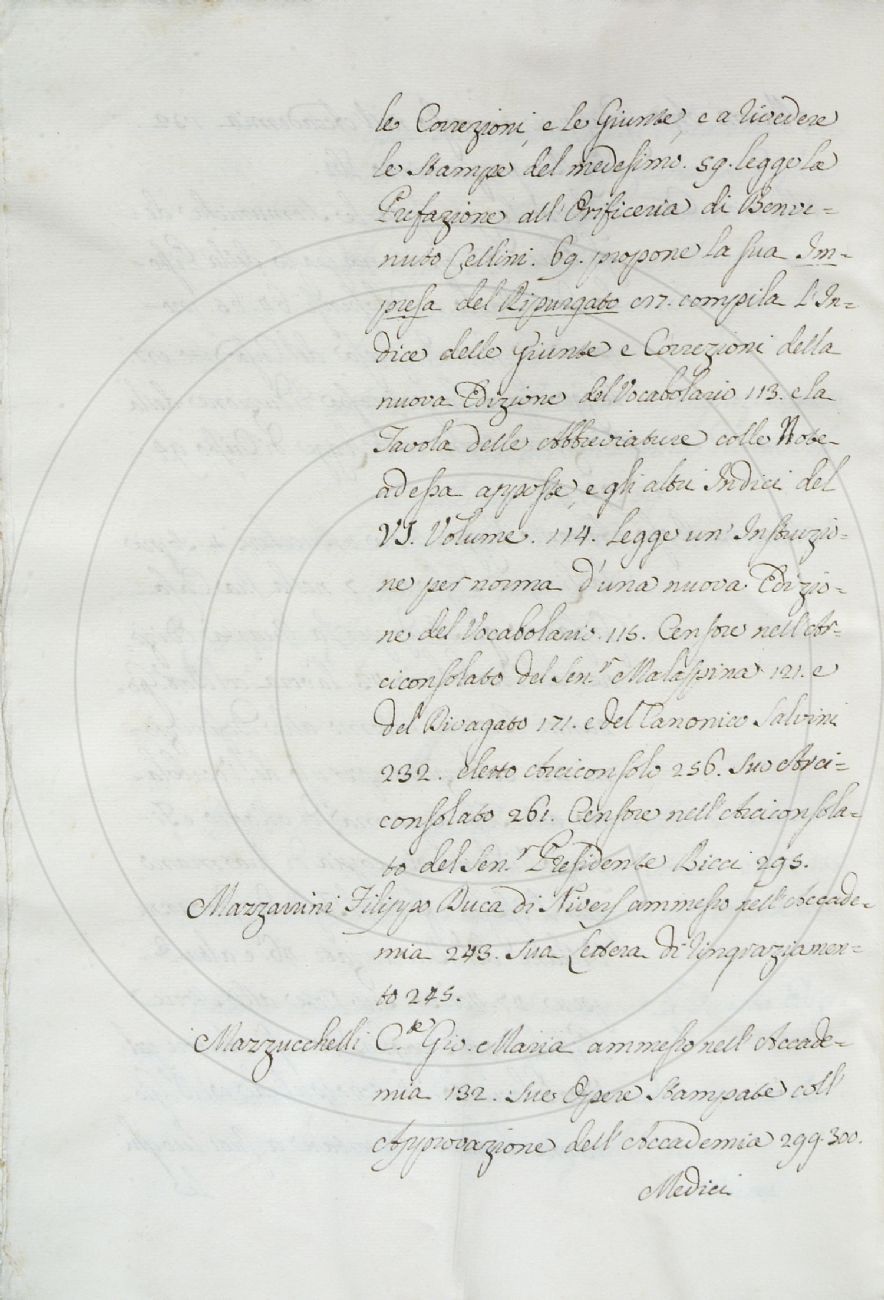 le Correzioni, e le Giunte, e a rivedere
le Stampe del medesimo. 59. legge la
Prefazione all'Orificeria di Benve-
nuto Cellini. 69. propone la sua Im-
presa del Ripurgato 017. compila l'In-
dice delle Giunte e Correzioni della
nuova Edizione del Vocabolario 113. e la
Tavola delle Abbreviature colle Note
ad essa apposte, e gli altri Indici del
VI. Volume. 114. Legge un'Instruzio-
ne per norma d'una nuova Edizio-
ne del Vocabolario. 115. Censore nell'Ar-
ciconsolato del Sen.r Malaspina 121. e
del Divagato 171. e del Canonico Salvini
232. eletto Arciconsolo 256. Suo Arci-
consolato 261. Censore nell'Arciconsola-
to del Sen.r Presidente Ricci 295.
Mazzarini Filippo Duca di Nivers ammesso nell'Accade-
mia 243. Sua Lettera di ringraziamen-
to 245.
Mazzucchelli C.te Gio. Maria ammesso nell'Accade-
mia 132. Sue Opere Stampate coll'
Approvazione dell'Accademia 299. 300.
Medici